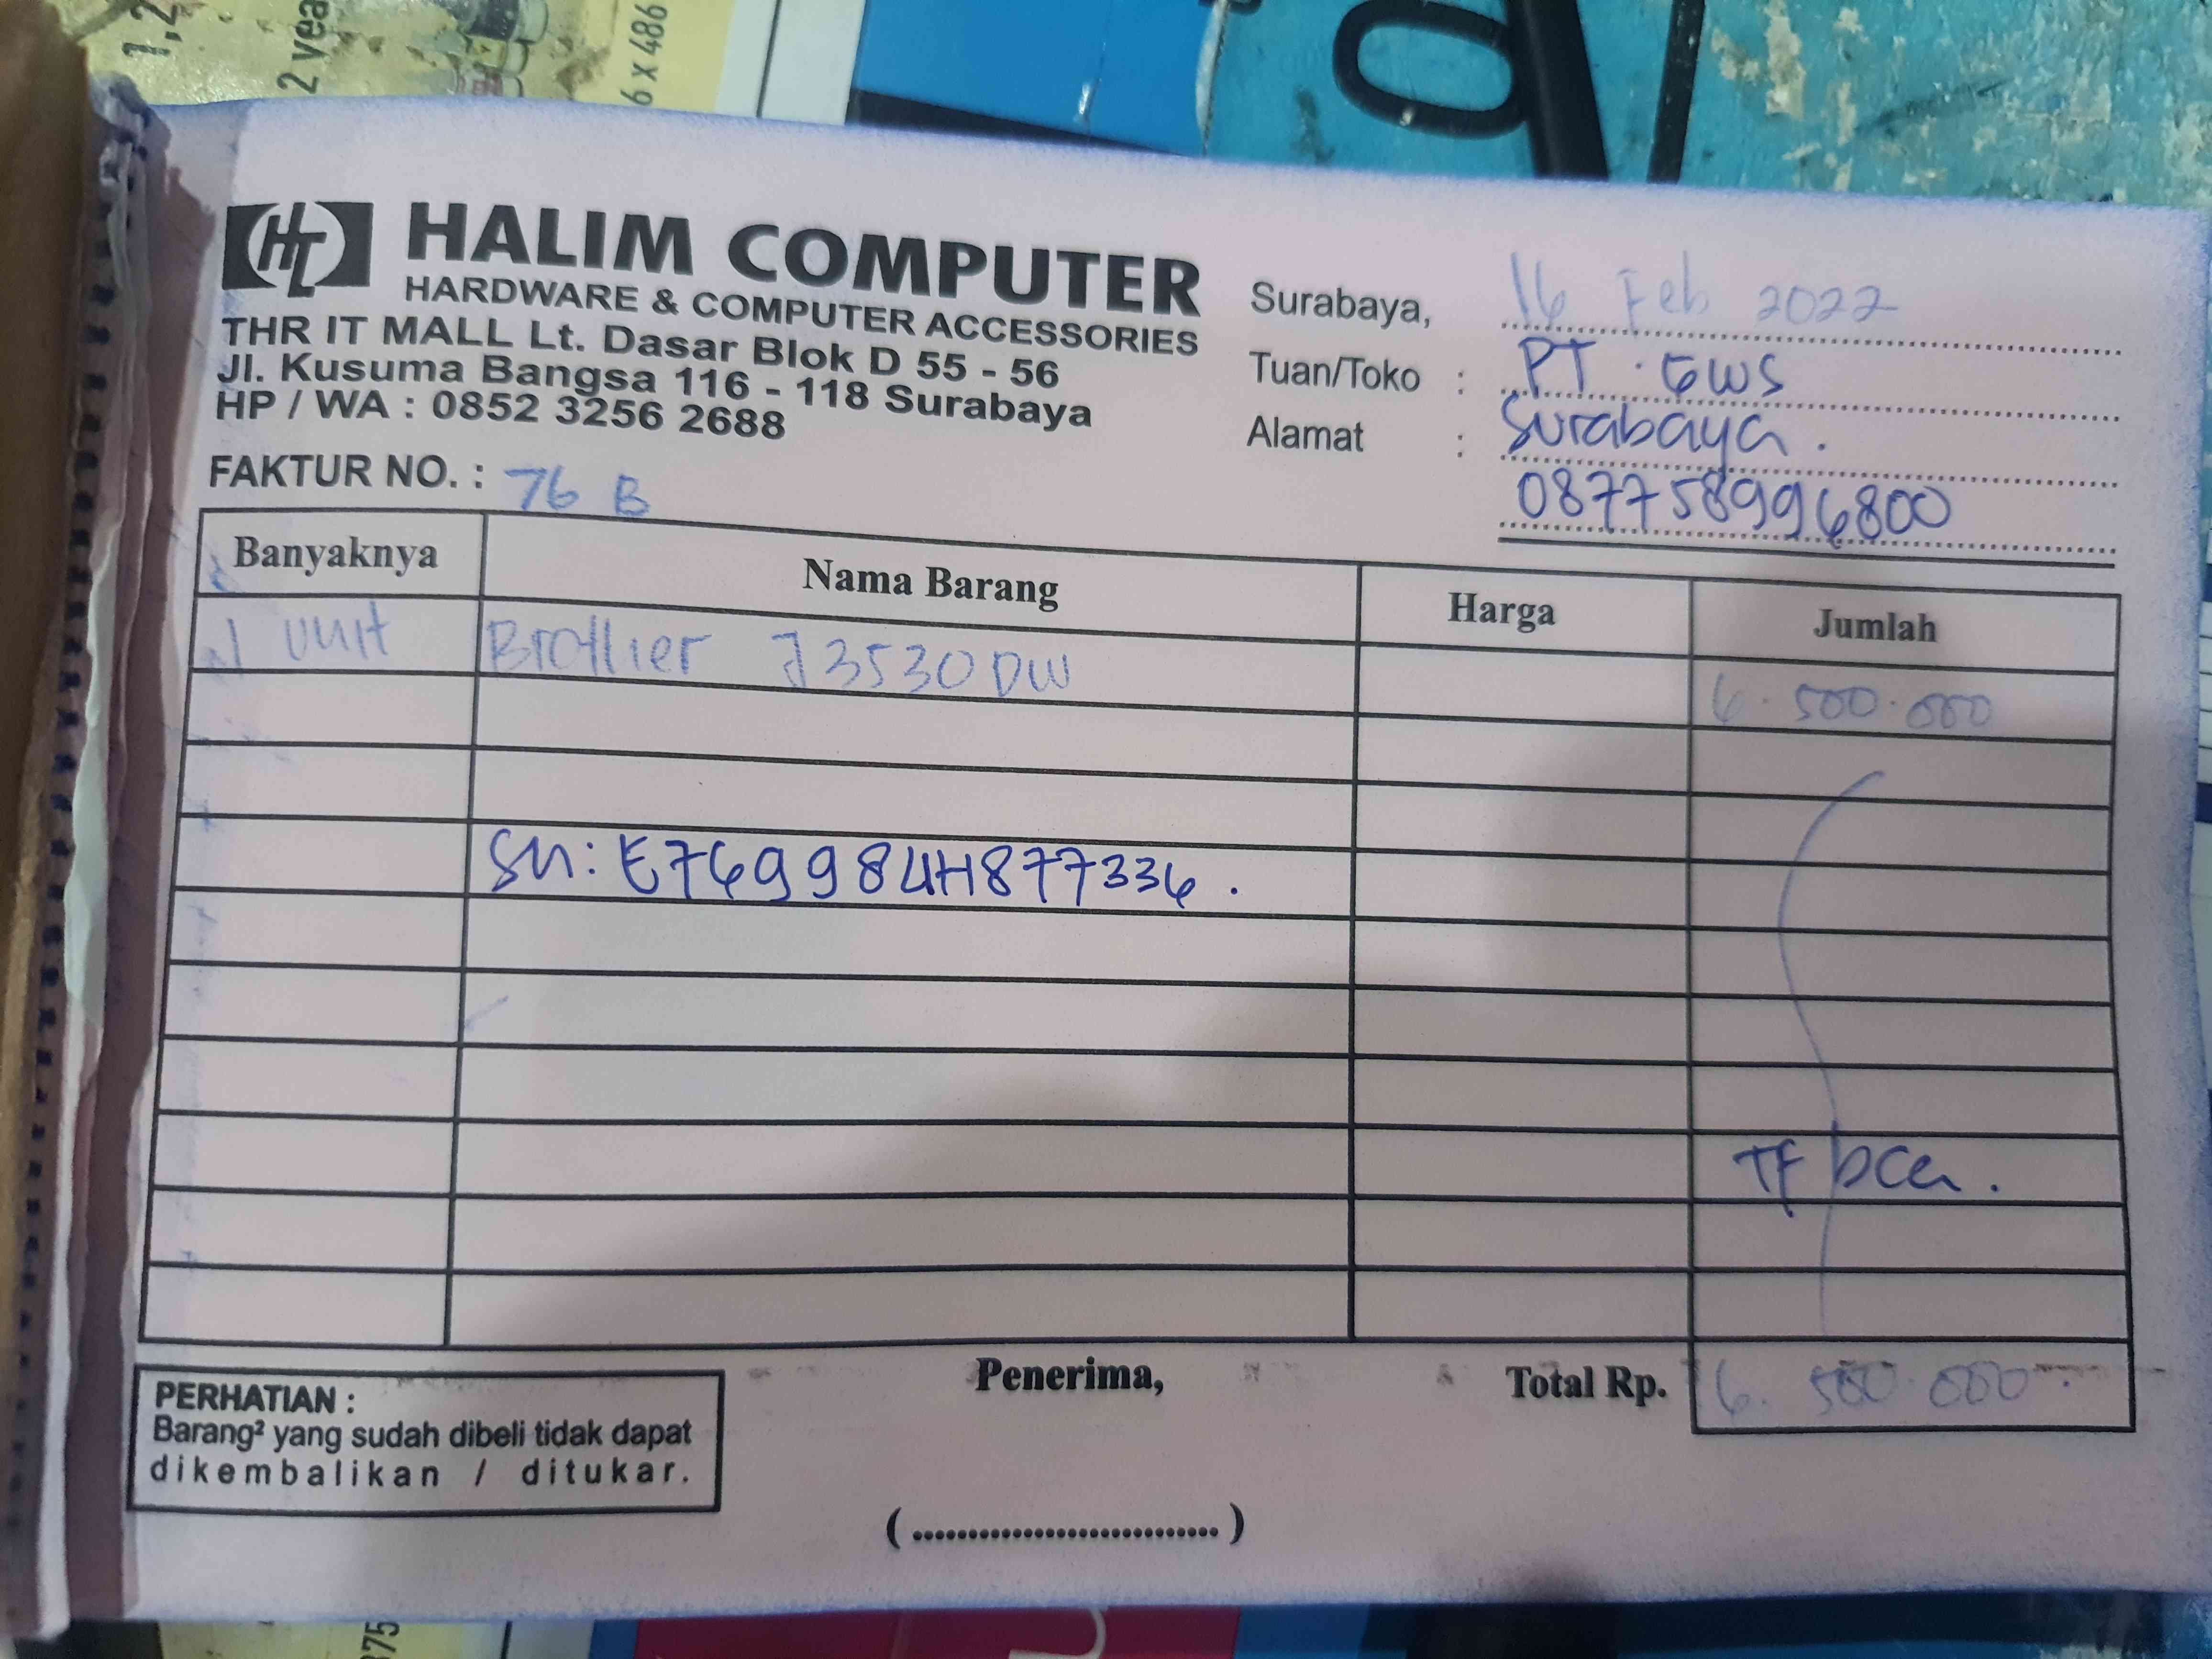 1,2
2 yea
6 x 486
HL HALIM COMPUTER
HARDWARE & COMPUTER ACCESSORIES
THR IT MALL Lt. Dasar Blok D 55 - 56
Jl. Kusuma Bangsa 116 - 118 Surabaya
HP / WA : 0852 3256 2688
Surabaya, 16 Feb 2022
Tuan/Toko : PT. GWS
Alamat : Surabaya.
087758996800
FAKTUR NO. : 76 B
Banyaknya Nama Barang Harga Jumlah
1 unit Brother J3530DW 6.500.000
SN: E769984H877336.
TF bca.
Penerima,
Total Rp. 6.500.000
PERHATIAN :
Barang² yang sudah dibeli tidak dapat
dikembalikan / ditukar.
(............................)
375